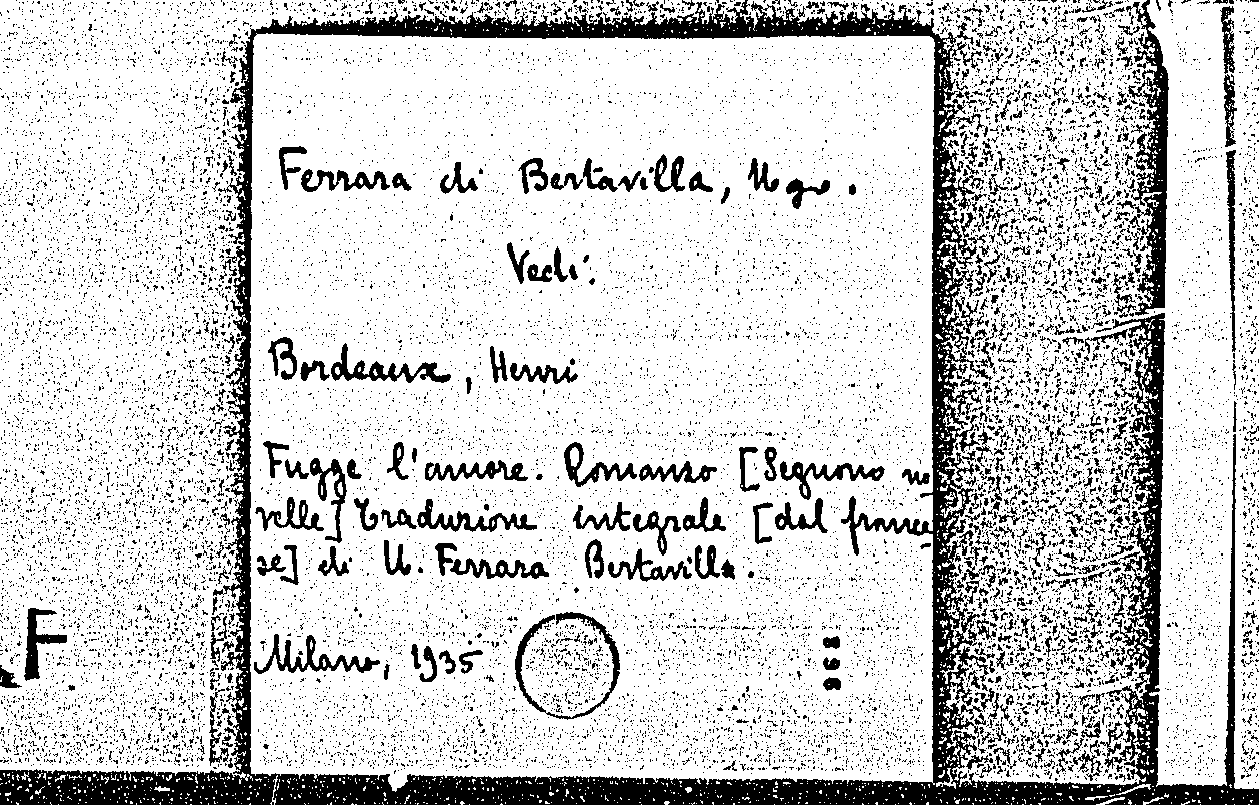 Ferrara di Bertavilla, Ugo.
Vedi:
Bordeaux, Henri
Fugge l'amore. Romanzo [Seguono no-
velle] Traduzione integrale [dal france-
se] di U. Ferrara Bertavilla.
Milano, 1935
F